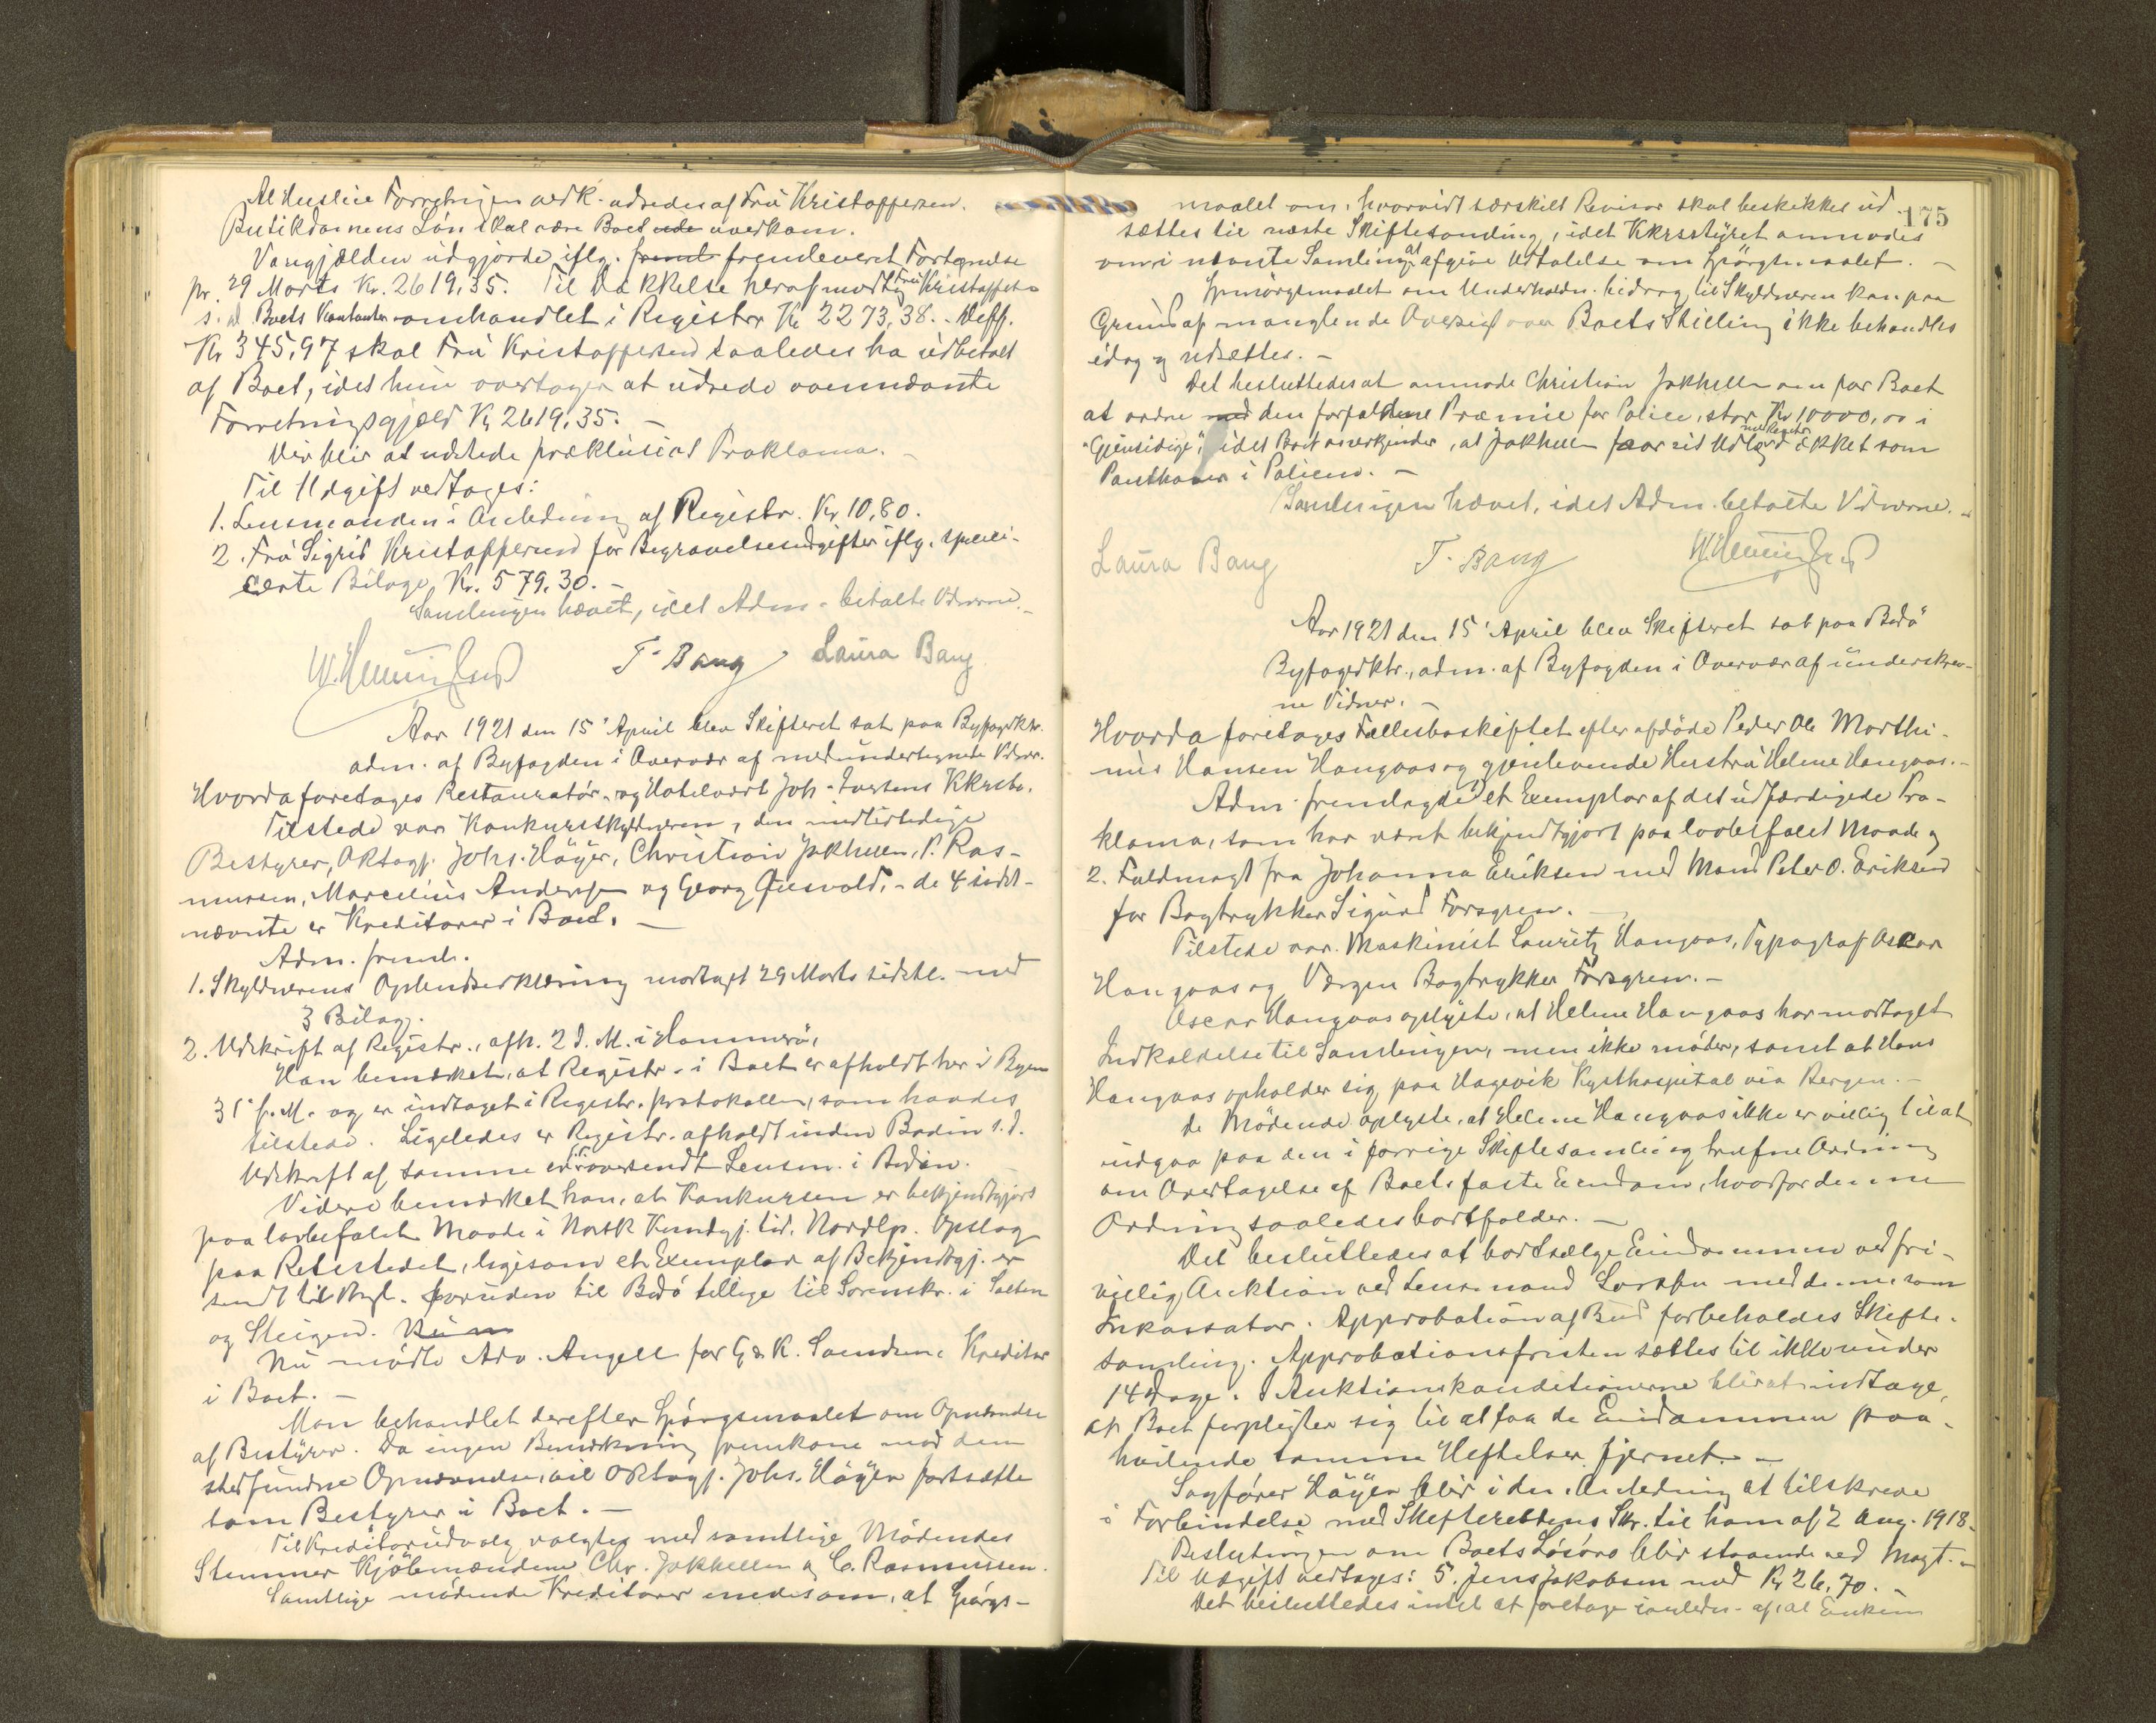 Al Huslice Forretningen vedk. udredes af Frü Kristoffersen.
Butikdamens Løn skal være Boet uvedkom.
Varegjælden udgjørde iflg. fremleveret Fortegnelse
pr. 29 Marts Kr. 2619,35. Til Dækkelse heraf modt. Frü Kristoffersen
s. d. Boets Kontanter omhandlet i Registr. Kr 2273,38. - Diff.
Kr 345,97 skal Frü Kristoffersen saaledes ha üdbetalt
af Boet, idet hün overtager at üdrede ovennævnte
Forretningsgjæld Kr 2619,35. -
Der blir at udstede præklüsivt Proklama. -
Til Udgift vedtoges:
1. Lensmanden i Anledning af Registr. Kr. 10,80.
2. Frü Sigrid Kristoffersen for Begravelsesudgifter iflg. speci-
certe Bilage, Kr. 579,30. -
Samlingen hævet, idet Adm. betalte Vidnerne. -
T. Bang Laüra Bang
Aar 1921 den 15' April blev Skifteret sat paa Byfogedktr.
adm. af Byfogden i Overvær af medundertegnede Vidner.
Hvorda foretages Restauratør- og Hotelvært Joh. Iversens Kkrsbo.
Tilstede var Konkursskyldneren, den midlertidige
Bestyrer, Oktsagf. Johs. Høyer, Christian Jakhelln, P. Ras-
mussen, Marcelius Andersen og Georg - de 4 sidst-
nævnte er Kreditorer i Boet. -
Adm. freml.
1. Skyldnerens Opbudserklæring modtagt 29 Marts sidstl. med
3 Bilag.
2. Udskrift af Registr., afh. 2 d. M. i Hammerø,
Han bemærket, at Registr. i Boet er afholdt her i Byen
31' f. M. og er indtaget i Registr. protokollen, som havdes
tilstede. Ligeledes er Registr. afholdt inden Bodin s. d.
Udskrift af samme er oversendt Lensm. i Bodin.
Videre bemærket han, at Konkursen er bekjendtgjort
paa lovbefalet Maade i Norsk Kundgj. tid. Nordlp. Opslag
paa Retsstedet, ligesom et Exemplar af Bekjendtgj. er
sendt til Tingl. foruden til Bodø tillige til Sorenskr. i Salten
og Steigen.
Nü mødte Adv. Angell for G & K. Kreditor
i Boet. -
Man behandlet derefter Spørgsmaalet om Opnævnelse
af Bestyrer. Da ingen Bemærkning fremkom mod den
stedfundne Opnævnelse, vil Oktsagf. Johs. Høyer fortsætte
som Bestyrer i Boet. -
Til Kreditorudvalg valgtes med samtlige Mødendes
Stemmer Kjøbmændene Chr. Jakhelln og C. Rasmussen.
Samtlige mødende Kreditorer enedes om, at Spørgs-
175
maalet om, hvorvidt særskilt Revisor skal beskikkes üd-
sættes til næste Skiftesamling, idet Kkrsstyret anmodes
om i nævnte Samling at afgive Udtalelse om Spørgsmaalet. -
Spørgsmaalet om Underholdn. bidrag til Skyldneren kan paa
Grund af manglende Oversigt over Boets Stilling ikke behandles
idag og udsættes. -
Det besluttedes at anmode Christian Jakhelln om for Boet
at ordne den forfaldne Præmie for Police, stor Kr 10000,00 i
"Gjensidige", idet Boet anerkjender, at Jakhelln faar sit Udlæg med Renter dækket som
Panthaver i Policen. -
Samlingen hævet, idet Adm. betalte Vidnerne. -
Laüra Bang T. Bang
Aar 1921 den 15' April blev Skifteret sat paa Bodø
Byfogedktr., adm. af Byfogden i Overvær af ünderskrev-
ne Vidner. -
Hvorda foretages Fællesboskiftet efter afdøde Peder Ole Marthi-
nus Hansen Haugaas og gjenlevende Hustrü Helene Haugaas. -
Adm. fremlagde et Exemplar af det üdfærdigede Pro-
klama, som har været bekjendtgjort paa lovbefalet Maade og
2. Fuldmagt fra Johanna Eriksen med Mand Peter O. Eriksen
for Bogtrykker Sigurd Forsgren. -
Tilstede var. Maskinist Lauritz Haugaas, Typograf Oscar
Haugaas og Værgen Bogtrykker Forsgren. -
Oscar Haugaas oplyste, at Helene Haugaas har modtaget
Indkaldelse til Samlingen, men ikke møder, samt at Hans
Haugaas opholder sig paa Hagevik Kysthospital via Bergen. -
De Mødende oplyste, at Helene Haugaas ikke er villig til at
indgaa paa den i forrige Skiftesamling trufne Ordning
om Overtagelse af Boets faste Eiendom, hvorfor denne
Ordning saaledes bortfalder. -
Det beslüttedes at bortsælge Eiendommen ved fri-
villig Auktion ved Lensmand med denne som
Inkassator. Approbation af Bud forbeholdes Skifte-
samling. Approbationsfristen sættes til ikke under
14 Dage. I Auktionskonditionerne blir at indtage,
at Boet forpligter sig til at faa de Eiendommen paa-
hvilende samme Heftelser fjernet. -
Sagfører Høyer blir i den Anledning at tilskrive
i Forbindelse med Skifterettens Skr. til ham af 2 Aug. 1918.
Beslutningen om Boets Løsøre blir staaende ved Magt. -
Til Udgift vedtages: 5. Jens Jakobsen med Kr 26,70. -
Det besluttedes intet at foretage af, at Enken